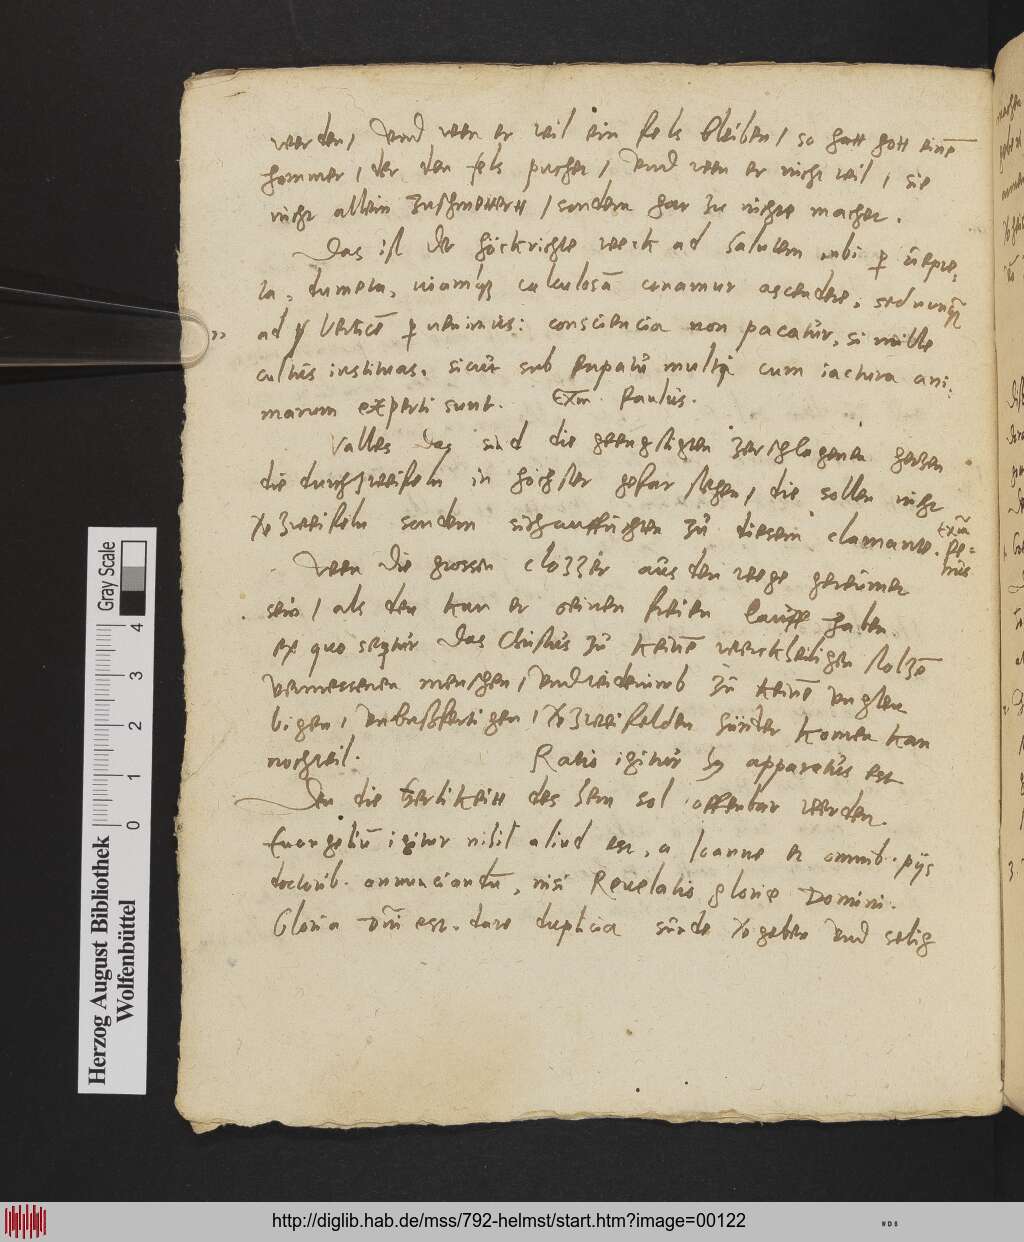 werden, und wen er wil ein fels bleiben, so hatt gott einē
hammer, der den fels puchet, und wen er nicht wil, sie
nicht allein zuschmettert, sondern gar zu nichte machet.
Das ist der höckrichte weck ad salutem, ubi p̱ vepre,
ta, dumeta, viamqȝ calculosā conamur ascendere, sed nunqȝ
ad verticē p̱venimus: conscientia non pacatur, si mille
cultus instituas, sicut sub papatu multi cum iactura ani,
marum experti sunt. Exm. Paulus.
Valles das sind die geengstigten zerschlagenen herzen
die durch zweifeln in höchster gefar stehen, die sollen nicht
vzweifeln sondern sich auffrichten zu diesem clamante. Exm̄
Pe=
trus
Wen die grossen clozzer aus den wege gereumet
sein, als den kan er seinen freien lauff haben.
ex quo seqtur das Christus zu keinē werckheiligen stolzē
vermessenen menschen, und widerumb zu keinē ungleu
bigen, unbussfertigen, vzweifelden sünder komen kan
noch wil. Ratio igitur hȝ apparatus est
Den die herlikeitt des hern sol offenbar werden.
Euangeliū igitur nihil aliud est, a Ioanne et omnib. pijs
doctorib. annunciandū, nisi Reuelatio gloriae Domini.
Gloria Dn̄i est. dare duplicia sünde vgeben und selig
Herzog August Bibliothek
Wolfenbüttel
Gray Scale
0 1 2 3 4
http://diglib.hab.de/mss/792-helmst/start.htm?image=00122